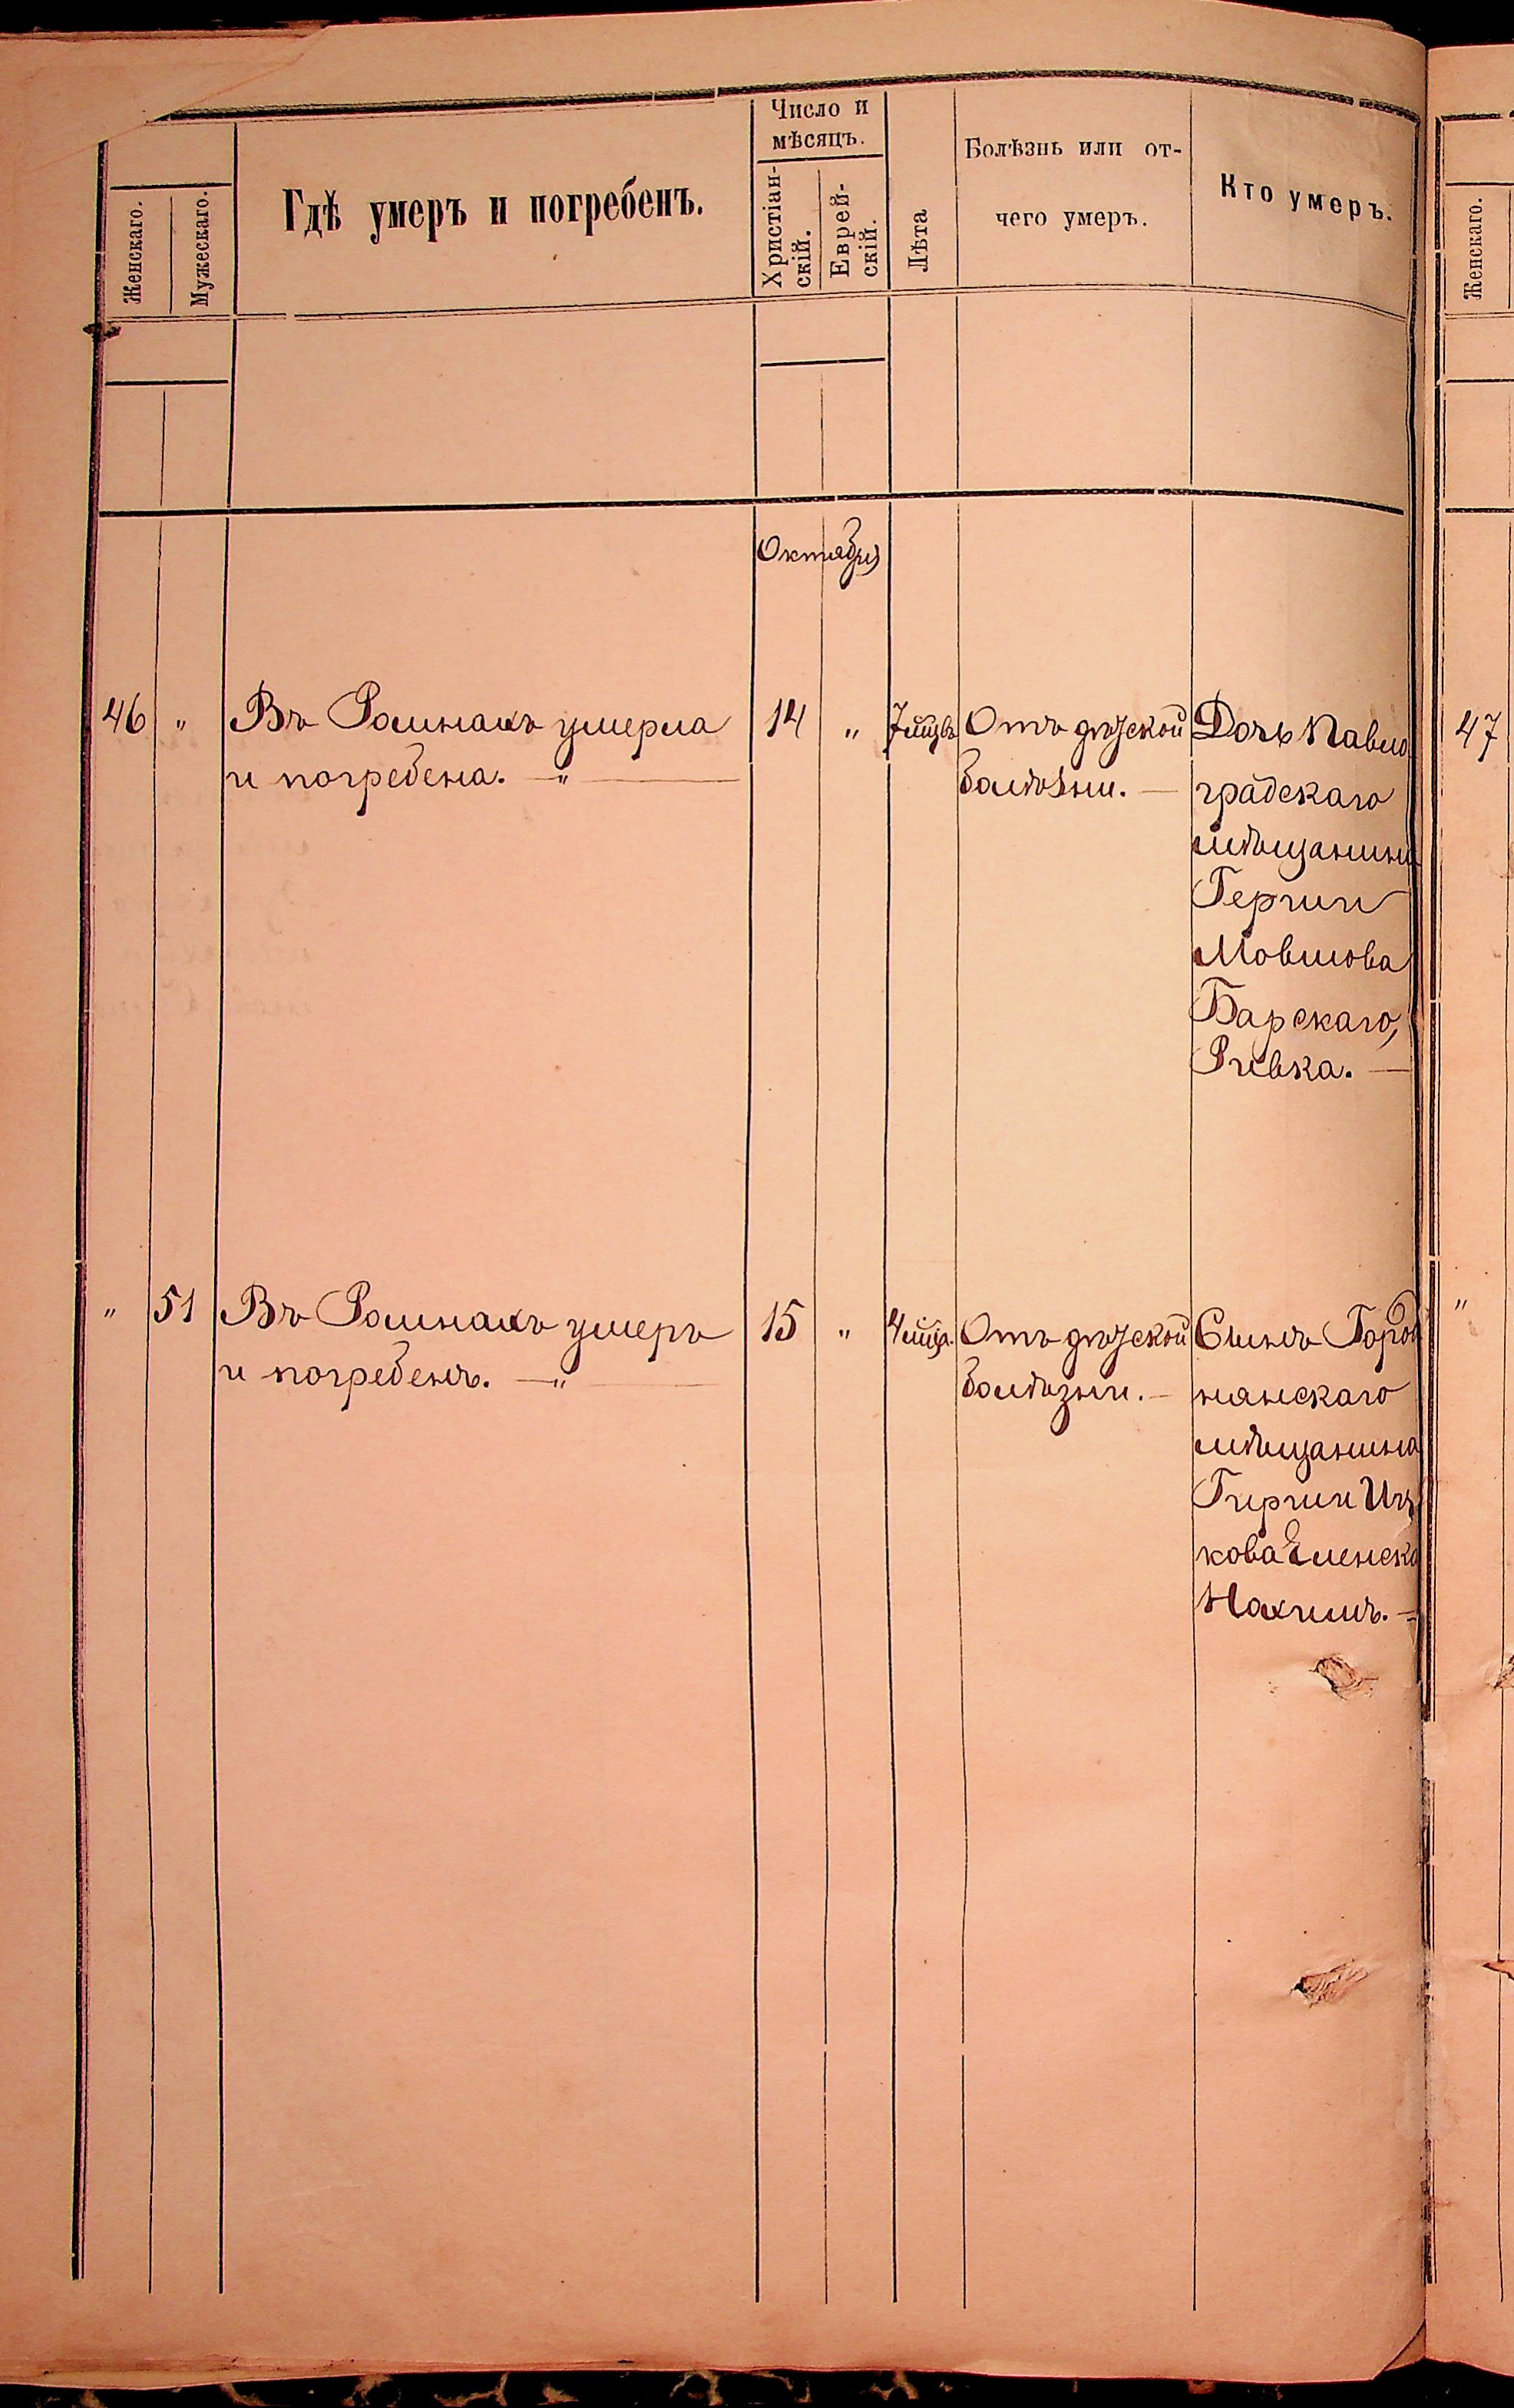 Женскаго.
Мужескаго.
Гдѣ умеръ и погребенъ.
Число и
мѣсяцъ.
Христіан-
скій.
Еврей-
скій.
Лѣта
Болѣзнь или от-
чего умеръ.
Кто умеръ.
Октября
46 " Въ Ромнахъ умерла
и погребена. — " —
14 "
7 м̃цвъ
Отъ дѣтской
болѣзни. —
Дочь Павло
градскаго
мѣщанина
Герши
Мовшова
Барскаго,
Ривка. —
" 51 Въ Ромнахъ умеръ
и погребенъ. — " —
15 "
4 м̃ца.
Отъ дѣтской
болѣзни. —
Сынъ Город
нянскаго
мѣщанина
Гирши Иц
кова
Нахимъ. —
Женскаго.
47
"